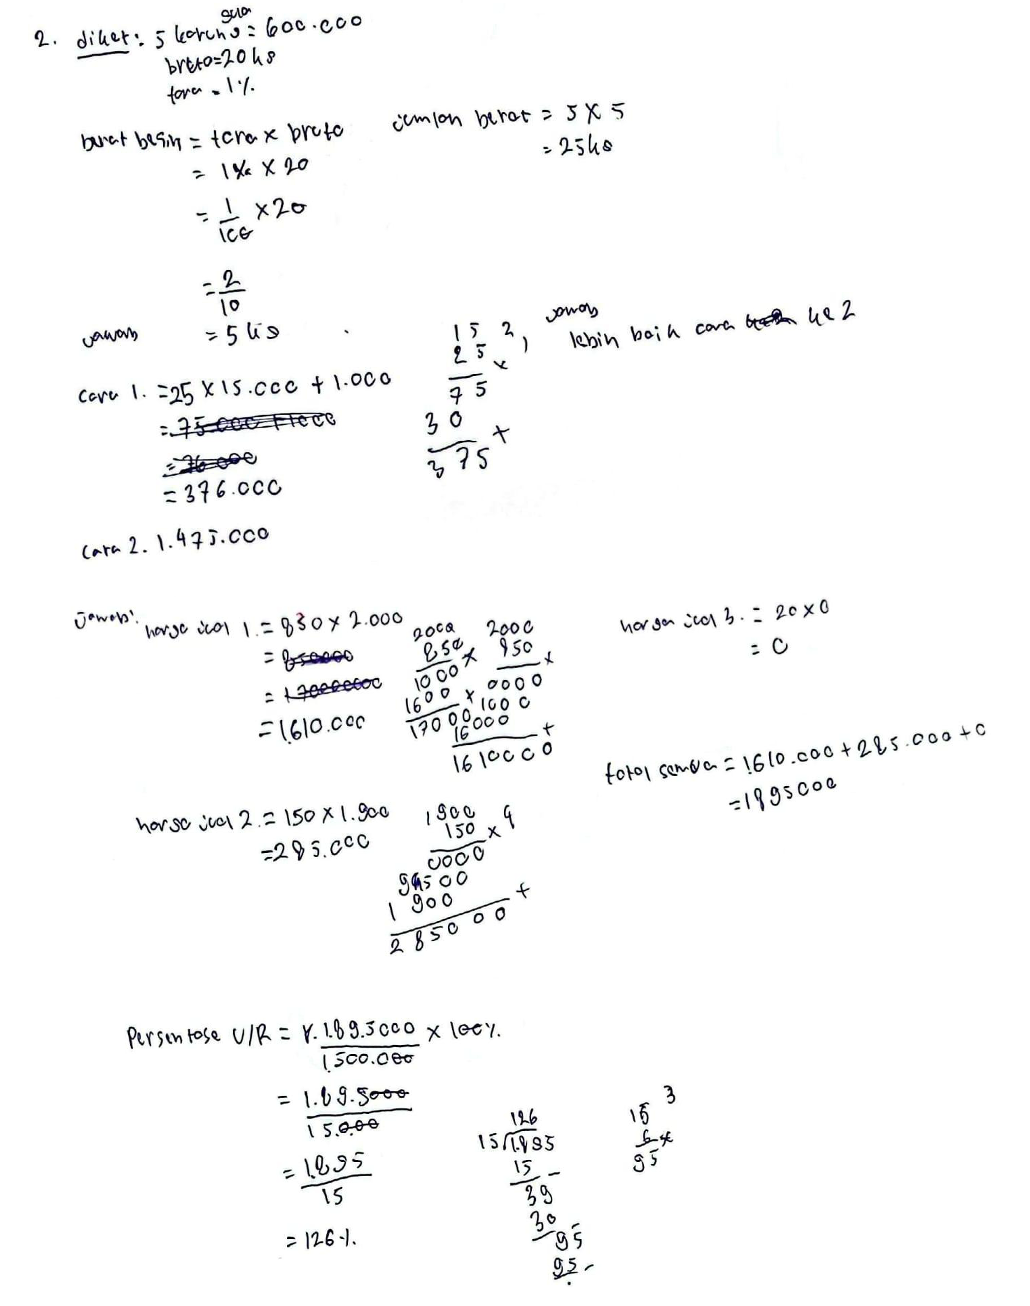 2. diket: 5 karung gula = 600.000
bruto=20 kg
tara = 1%
berat besin = tara x bruto
= 1% x 20
= 1/100 x 20
= 2/10
= 5 kg
jumlah berat = 5 x 5
= 25 kg
jawab
Cara 1. = 25 x 15.000 + 1.000
= 376.000
15 2
25 x
75
30 +
375
jawab
lebih baik cara ke 2
Cara 2. 1.475.000
Jawab:
harga jual 1. = 830 x 2.000
= 1.610.000
2000
850 x
1000
1600 x
17000
2000
850 x
0000
1000
16000 +
1610000
harga jual 3. = 20 x 0
= 0
total semua = 1.610.000 + 285.000 + 0
= 1895000
harga jual 2. = 150 x 1.900
= 285.000
1900 4
150 x
0000
9500
1900 +
285000
Persentase U/R = 1.895000 / 1.500.000 x 100%
= 1.895000 / 15.000
= 1.895 / 15
= 126%
126
15 1.895
15 -
39
30
95
95 -
15 3
6 x
95